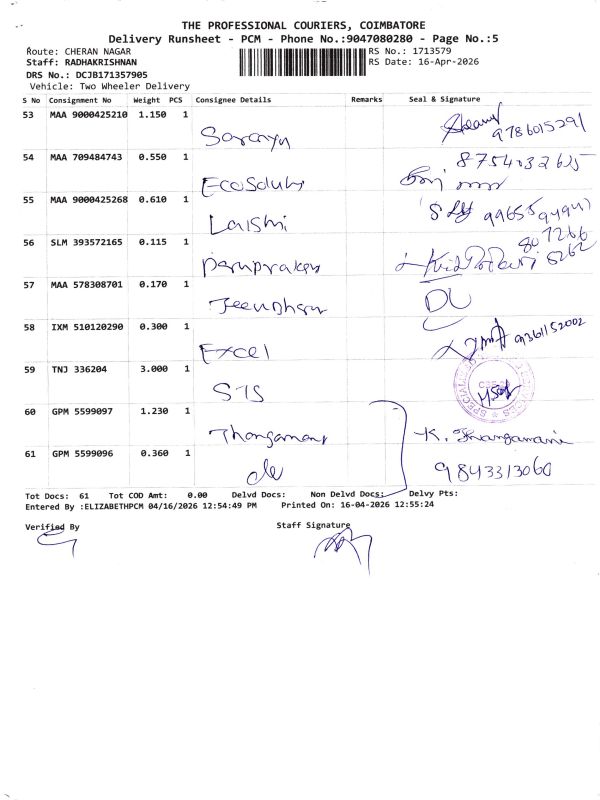 THE PROFESSIONAL COURIERS, COIMBATORE
Delivery Runsheet - PCM - Phone No.:9047080280 - Page No.:5
Route: CHERAN NAGAR
RS No.: 1713579
Staff: RADHAKRISHNAN
RS Date: 16-Apr-2026
DRS No.: DCJB171357905
Vehicle: Two Wheeler Delivery
S No Consignment No Weight PCS Consignee Details Remarks Seal & Signature
53 MAA 9000425210 1.150 1
Saranya 9786015291
54 MAA 709484743 0.550 1
55 MAA 9000425268 0.610 1
Laksmi
56 SLM 393572165 0.115 1
57 MAA 578308701 0.170 1
58 IXM 510120290 0.300 1
Excel 9361152002
59 TNJ 336204 3.000 1
STS
60 GPM 5599097 1.230 1
Thangamani K. Thangamani
61 GPM 5599096 0.360 1
9843313060
Tot Docs: 61 Tot COD Amt: 0.00 Delvd Docs: Non Delvd Docs: Delvy Pts:
Entered By :ELIZABETHPCM 04/16/2026 12:54:49 PM Printed On: 16-04-2026 12:55:24
Verified By Staff Signature